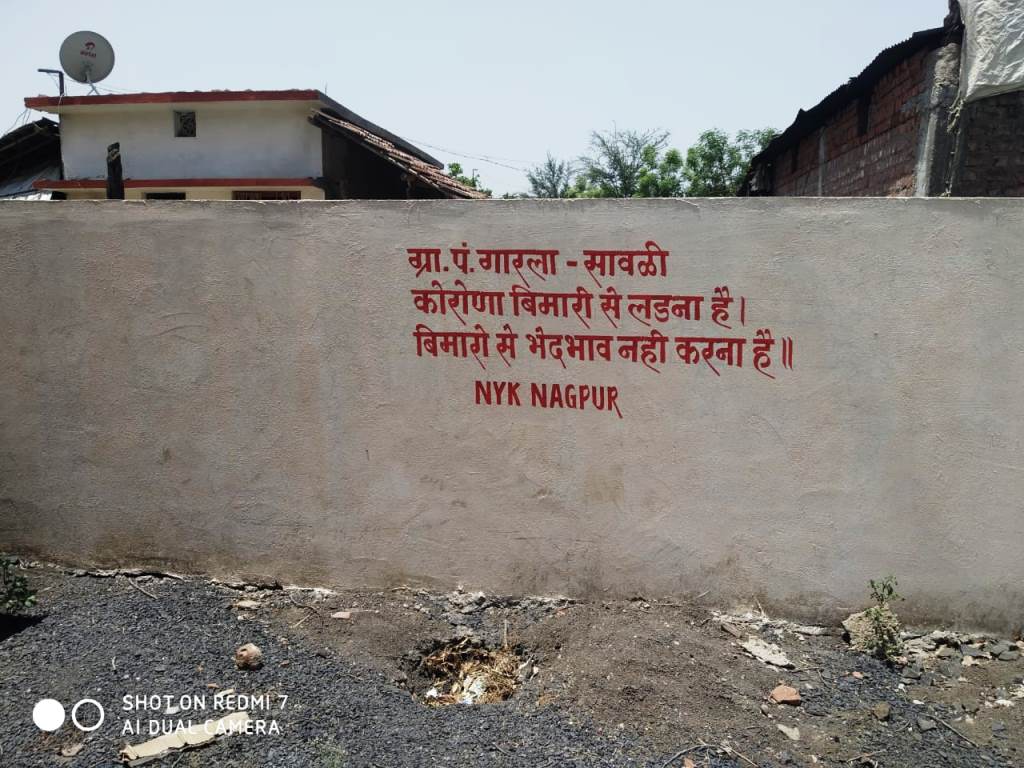 airtel
ग्रा.पं. गारला - सावळी
कोरोणा बिमारी से लडना है।
बिमारी से भेदभाव नही करना है॥
NYK NAGPUR
SHOT ON REDMI 7
AI DUAL CAMERA